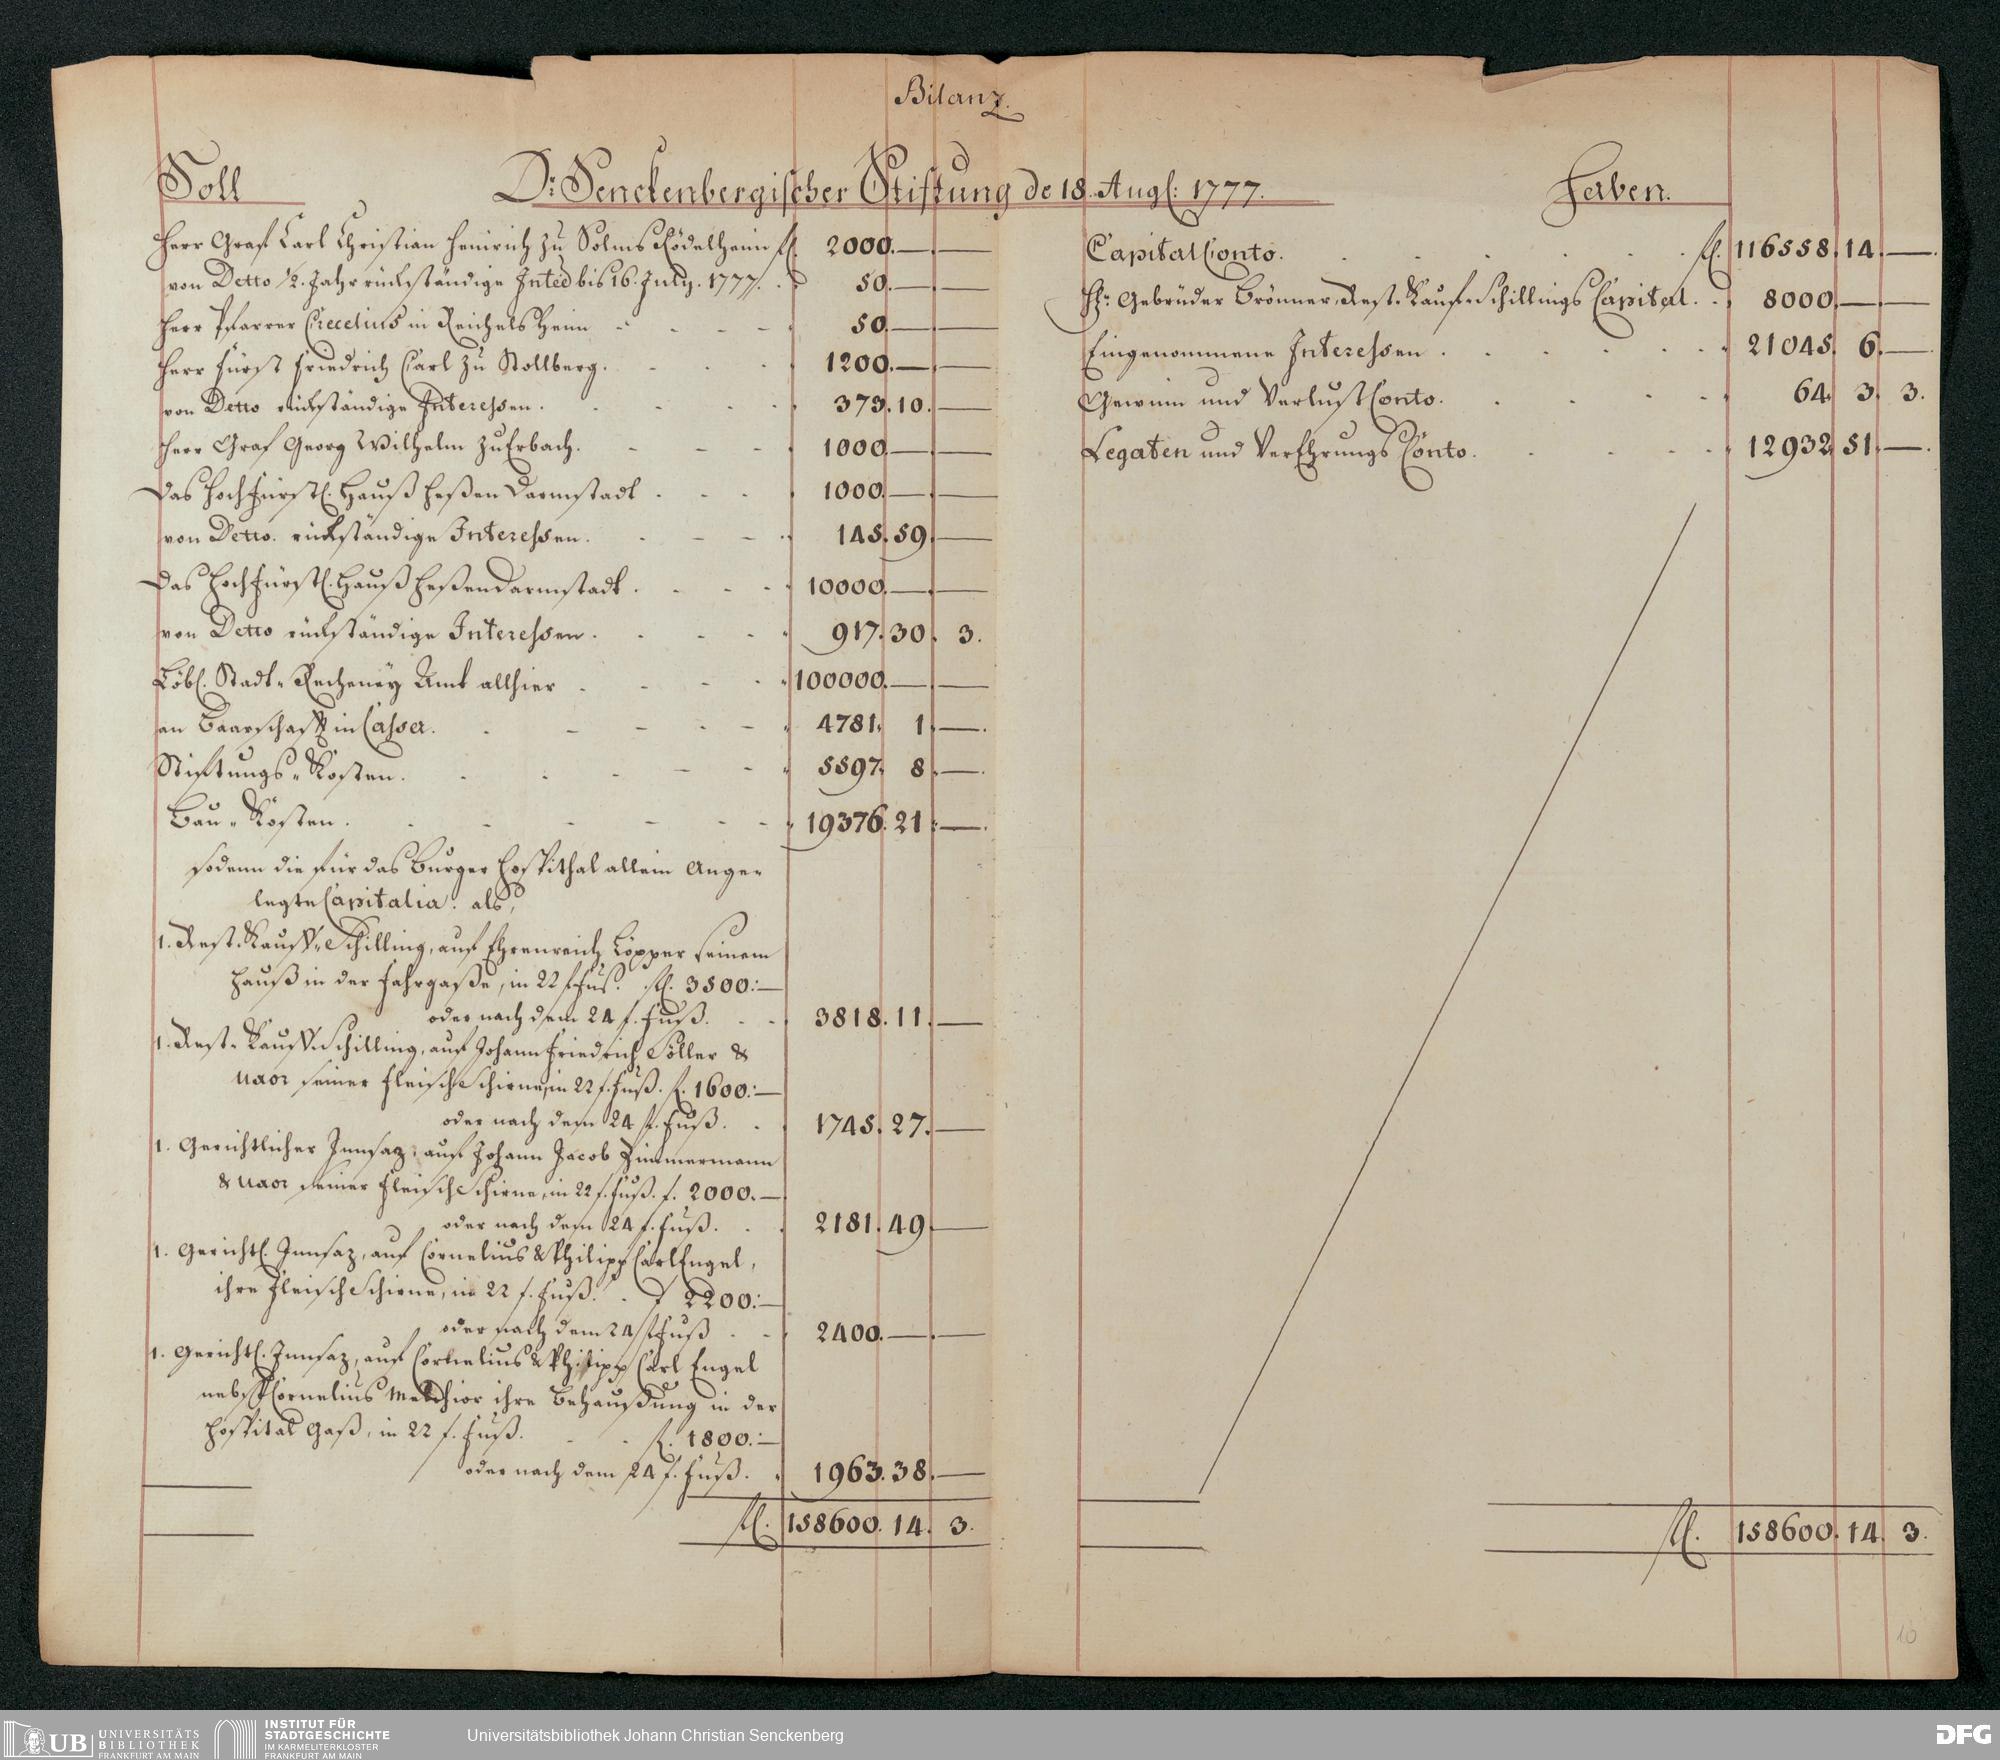 Bilanz.
Soll Dr: Senckenbergischer Stiftung de 18. Augs: 1777. Haben.
Herr Graf Carl Christian Heinrich zu Solms Rödelheim fl. 2000.—.—
von Detto 1/2. Jahr rückständige bis 16. July. 1777. 50.—.—
Herr Pfarrer Crecelius in Reichelsheim 50.—.—
Herr Fürst Friedrich Carl zu Stollberg. 1200.—.—
von Detto rückständige Interessen. 373.10.—
Herr Graf Georg Wilhelm zu Erbach. 1000.—.—
Das Hochfürstl. Hauß Heßen Darmstadt. 1000.—.—
von Detto. rückständige Interessen. 145.59.—
Das Hochfürstl. Hauß Heßen Darmstadt. 10000.—.—
von Detto rückständige Interessen. 917.30.3.
Löbl. Stadt-Recheney Amt allhier 100000.—.—
an Baarschafft in Cassa. 4781. 1.—.
Stiftungs-Kosten. 5597. 8.—.
Bau-Kosten. 19376.21.—.
sodann die für das Burger Hospithal allein Ange-
legte Capitalia. als,
1. Rest-Kauff-Schilling, auf Ehrenreich Löpper seinem
Hauß in der Fahrgaße, in 22 f. Fus. fl. 3500:—
oder nach dem 24 f. Fuß. 3818.11.—
1. Rest-Kauff-Schilling, auf Johann Friedrich Söller &
uxor seiner Fleisch Schirne, in 22 f. Fuß. f. 1600:—
oder nach dem 24 f. Fuß. 1745.27.—
1. Gerichtlicher Innsaz, auf Johann Jacob Zimmermann
& uxor seiner Fleisch Schirne, in 22 f. Fuß. f. 2000.—
oder nach dem 24 f. Fuß. 2181.49.—
1. Gerichtl. Innsaz, auf Cornelius & Philipp Carl Engel,
ihre Fleisch Schirne, in 22 f. Fuß. f 2200:—
oder nach dem 24 f. Fuß 2400.—.—
1. Gerichtl. Innsaz, auf Cornelius & Philipp Carl Engel
nebst Cornelius Melchior ihre Behaußung in der
Hospital Gaß, in 22 f. Fuß. f. 1800:—
oder nach dem 24 f. Fuß. 1963.38.—
fl. 158600.14.3.
Capital Conto. fl. 116558.14.—.
Hr: Gebrüder Brönner, Rest-Kauf-Schillings Capital. 8000.—.—
Eingenommene Interessen. 21045. 6.—.
Gewinn und Verlust Conto. 64. 3. 3.
Legaten und VerEhrungs Conto. 12932.51.—.
fl. 158600.14.3.
10
UB UNIVERSITÄTS
BIBLIOTHEK
FRANKFURT AM MAIN
INSTITUT FÜR
STADTGESCHICHTE
IM KARMELITERKLOSTER
FRANKFURT AM MAIN
Universitätsbibliothek Johann Christian Senckenberg
DFG